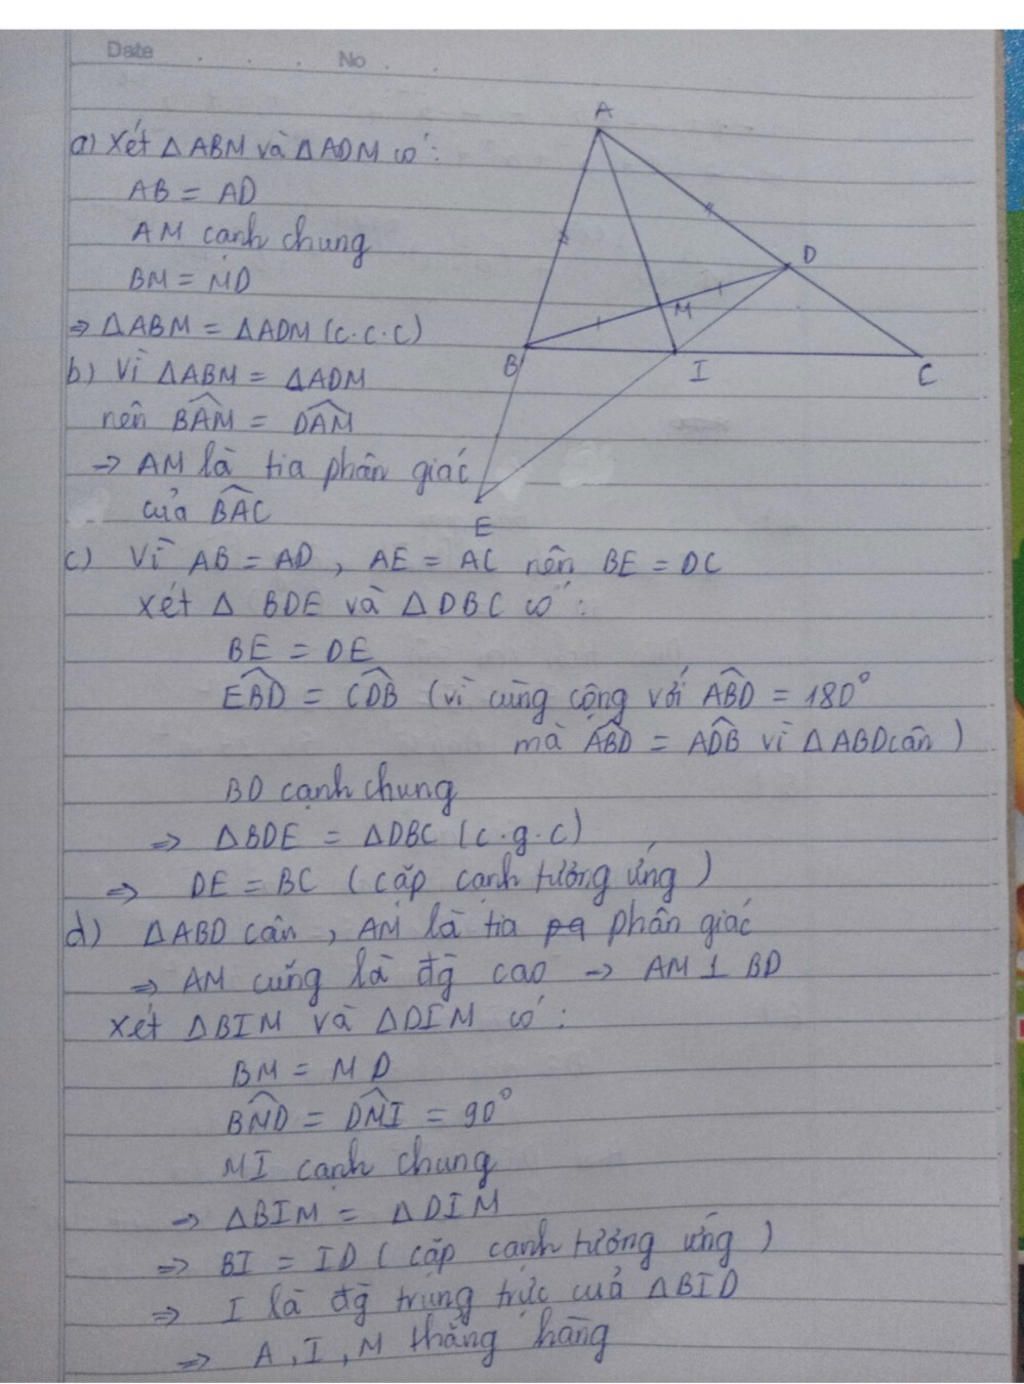 Date . . . No . .
A
a) Xét ΔABM và ΔADM có:
AB = AD
AM cạnh chung
D
BM = MD
M
⇒ ΔABM = ΔADM (c.c.c)
B
I
C
b) Vì ΔABM = ΔADM
nên BAM^ = DAM^
→ AM là tia phân giác
của BAC^
E
c) Vì AB = AD, AE = AC nên BE = DC
Xét Δ BDE và ΔDBC có:
BE = DE
EBD^ = CDB^ (vì cùng cộng với ABD^ = 180°
mà ABD^ = ADB^ vì ΔABD cân)
BD cạnh chung
⇒ ΔBDE = ΔDBC (c.g.c)
⇒ DE = BC (cặp cạnh tương ứng)
d) ΔABD cân, AM là tia pg phân giác
⇒ AM cũng là đg cao → AM ⊥ BD
Xét ΔBIM và ΔDIM có:
BM = MD
BMD^ = DMI^ = 90°
MI cạnh chung
→ ΔBIM = ΔDIM
⇒ BI = ID (cặp cạnh tương ứng)
⇒ I là đg trung trực của ΔBID
⇒ A, I, M thẳng hàng